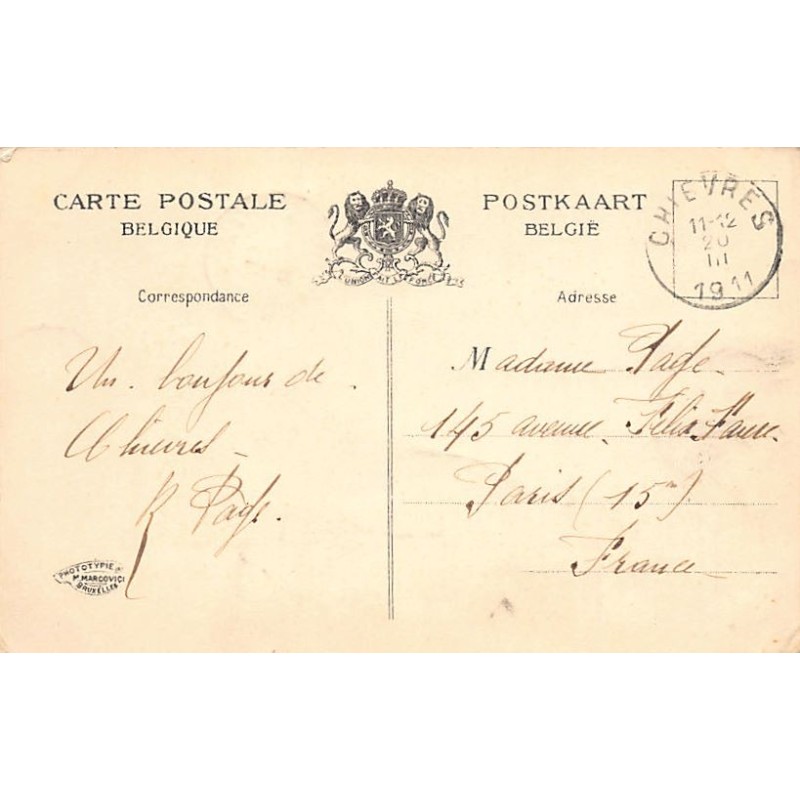 CARTE POSTALE
BELGIQUE
POSTKAART
BELGIË
CHIÈVRES
11-12
20
III
1911
L'UNION FAIT LA FORCE
Correspondance
Adresse
Un bonjour de
Chièvres
R
Madame
145 avenue Félix Faure
Paris (15me)
France
PHOTOTYPIE
M. MARCOVICI
BRUXELLES